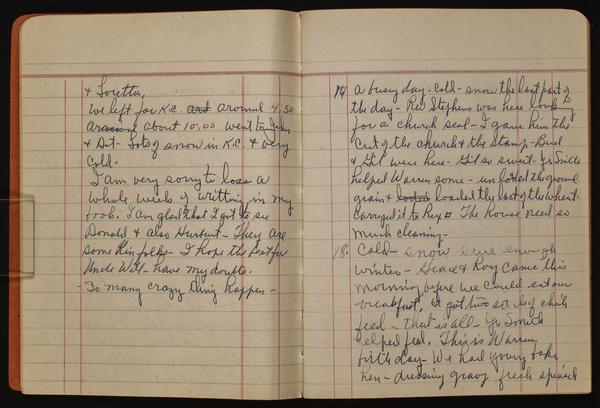 & Loretta,
We left for K.C. and around 4:30
about 10:00 went to
& Art - Lots of snow in K.C. & very
Cold.
I am very sorry to loss a
whole week of writting in my
book. I am glad that I got to see
Donald & also Hurburt - They are
some kin folks - I hope the best for
Uncle Will - have my doubts.
- To many crazy thing happen -
14 a busy day - Cold - snow the last part of
the day - Rev Stephens was here looking
for a church seal - I gave him the
Cut of the church & the Stamp - Bud
& Gil were here - Gil so sweet. Jr Smith
helped Warren some - unloded the ground
grain & loaded the last of the wheat.
Carryed it to Rex. The house need so
much cleaning -
18. Cold - snow sure enough
winter - & Roy came this
morning before we could eat our
breakfast, got two so lbs of chick
feed - that is all Jr Smith
helped feed. This is Warren
birth day - We had young bake
hen - dressing gravy fresh spinach